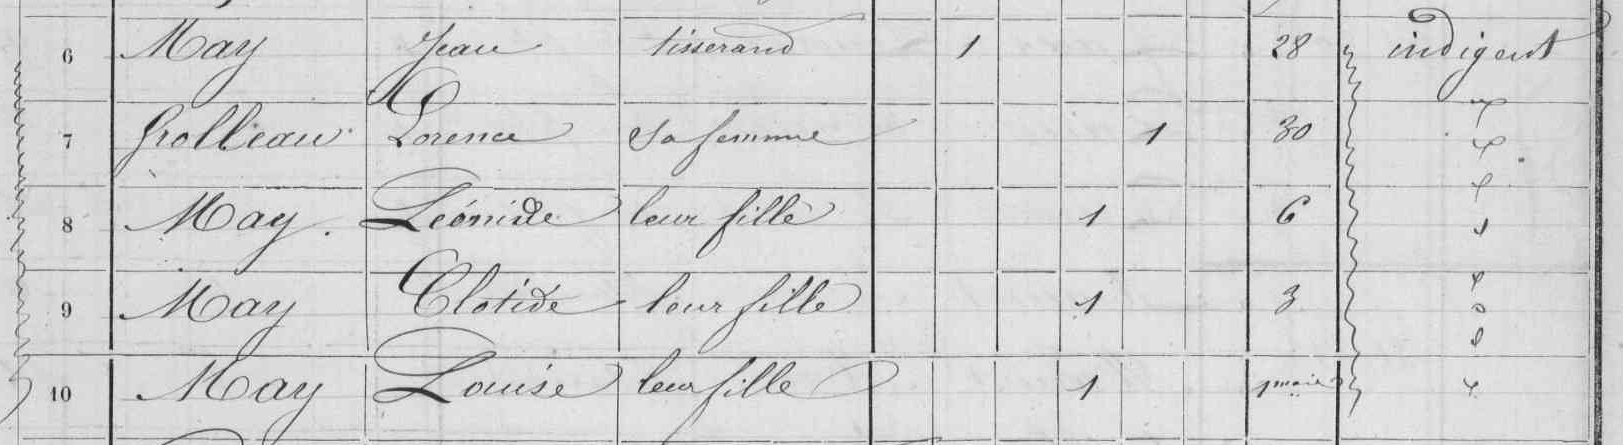 6 May Jean tisserand 1 28 indigent
7 Grolleau Lorence sa femme 1 30
8 May. Léonide leur fille 1 6
9 May Clotide leur fille 1 3
10 May Louise leur fille 1 1 mois